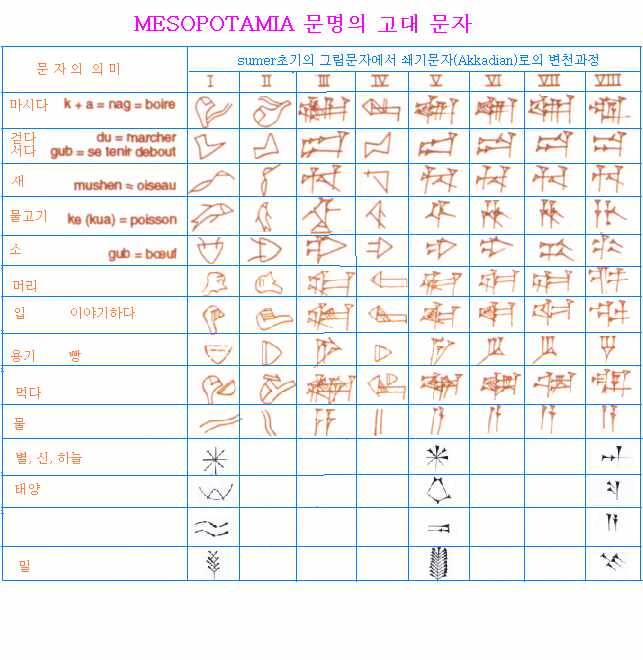 MESOPOTAMIA 문명의 고대 문자
문자의 의미
sumer초기의 그림문자에서 쐐기문자(Akkadian)로의 변천과정
I II III IV V VI VII VIII
마시다 k + a = nag = boire
걷다 du = marcher
서다 gub = se tenir debout
새 mushen = oiseau
물고기 ke (kua) = poisson
소 gub = bœuf
머리
입 이야기하다
용기 빵
먹다
물
별, 신, 하늘
태양
밀